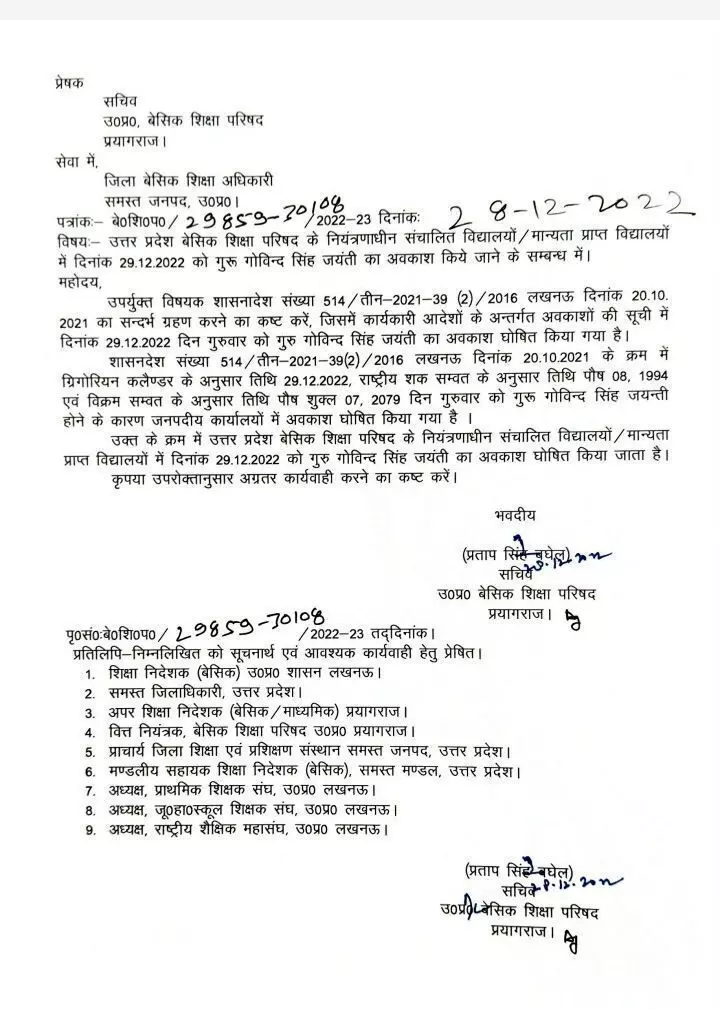 प्रेषक
सचिव
उ0प्र0, बेसिक शिक्षा परिषद
प्रयागराज।
सेवा में,
जिला बेसिक शिक्षा अधिकारी
समस्त जनपद, उ0प्र0।
पत्रांकः– बे0शि0प0/ 29859-30108 /2022–23 दिनांकः 28-12-2022
विषयः– उत्तर प्रदेश बेसिक शिक्षा परिषद के नियंत्रणाधीन संचालित विद्यालयों/मान्यता प्राप्त विद्यालयों
में दिनांक 29.12.2022 को गुरू गोविन्द सिंह जयंती का अवकाश किये जाने के सम्बन्ध में।
महोदय,
उपर्युक्त विषयक शासनादेश संख्या 514/तीन–2021–39 (2)/2016 लखनऊ दिनांक 20.10.
2021 का सन्दर्भ ग्रहण करने का कष्ट करें, जिसमें कार्यकारी आदेशों के अन्तर्गत अवकाशों की सूची में
दिनांक 29.12.2022 दिन गुरूवार को गुरु गोविन्द सिंह जयंती का अवकाश घोषित किया गया है।
शासनदेश संख्या 514/तीन–2021–39(2)/2016 लखनऊ दिनांक 20.10.2021 के क्रम में
ग्रिगोरियन कलैण्डर के अनुसार तिथि 29.12.2022, राष्ट्रीय शक सम्वत के अनुसार तिथि पौष 08, 1994
एवं विक्रम सम्वत के अनुसार तिथि पौष शुक्ल 07, 2079 दिन गुरुवार को गुरू गोविन्द सिंह जयन्ती
होने के कारण जनपदीय कार्यालयों में अवकाश घोषित किया गया है ।
उक्त के क्रम में उत्तर प्रदेश बेसिक शिक्षा परिषद के नियंत्रणाधीन संचालित विद्यालयों/मान्यता
प्राप्त विद्यालयों में दिनांक 29.12.2022 को गुरु गोविन्द सिंह जयंती का अवकाश घोषित किया जाता है।
कृपया उपरोक्तानुसार अग्रतर कार्यवाही करने का कष्ट करें।
भवदीय
(प्रताप सिंह बघेल)
सचिव 28.12.2022
उ0प्र0 बेसिक शिक्षा परिषद
प्रयागराज।
पृ0सं0:बे0शि0प0/ 29859-30108 /2022–23 तद्दिनांक।
प्रतिलिपि–निम्नलिखित को सूचनार्थ एवं आवश्यक कार्यवाही हेतु प्रेषित।
1. शिक्षा निदेशक (बेसिक) उ0प्र0 शासन लखनऊ।
2. समस्त जिलाधिकारी, उत्तर प्रदेश।
3. अपर शिक्षा निदेशक (बेसिक/माध्यमिक) प्रयागराज।
4. वित्त नियंत्रक, बेसिक शिक्षा परिषद उ0प्र0 प्रयागराज।
5. प्राचार्य जिला शिक्षा एवं प्रशिक्षण संस्थान समस्त जनपद, उत्तर प्रदेश।
6. मण्डलीय सहायक शिक्षा निदेशक (बेसिक), समस्त मण्डल, उत्तर प्रदेश।
7. अध्यक्ष, प्राथमिक शिक्षक संघ, उ0प्र0 लखनऊ।
8. अध्यक्ष, जू0हा0स्कूल शिक्षक संघ, उ0प्र0 लखनऊ।
9. अध्यक्ष, राष्ट्रीय शैक्षिक महासंघ, उ0प्र0 लखनऊ।
(प्रताप सिंह बघेल)
सचिव 28.12.2022
उ0प्र0 बेसिक शिक्षा परिषद
प्रयागराज।